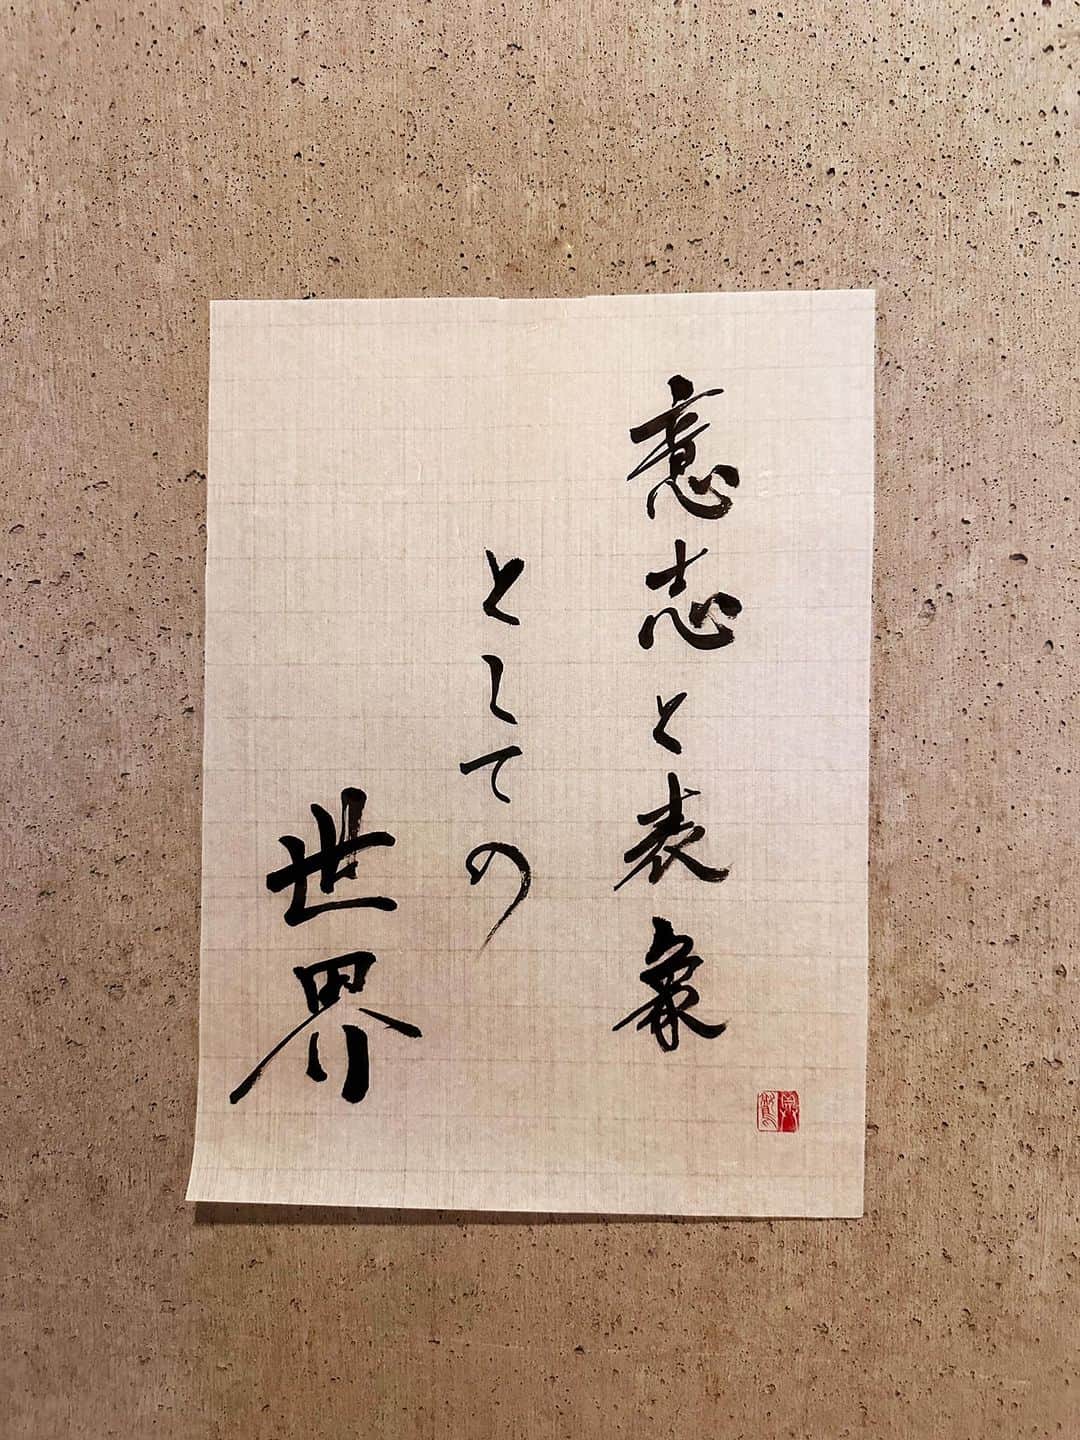 意志と表象
としての
世界